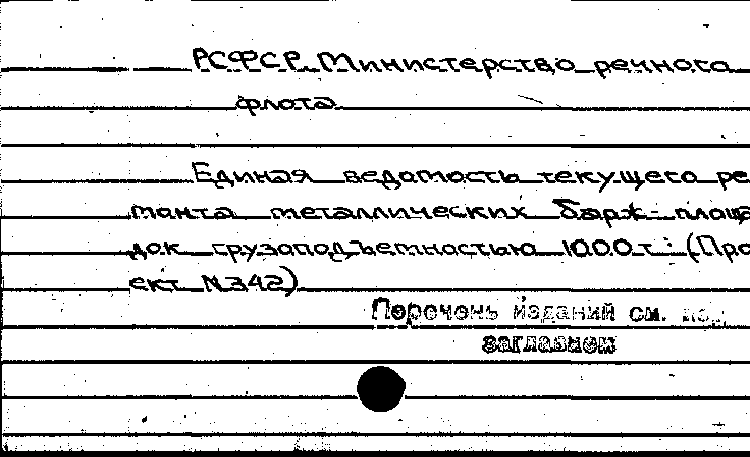 РСФСР. Министерство речного
флота.
Единая ведомость текущего ре
монта металлических барж-площа
док грузоподъемностью 1000 т: (Про
ект №342)
Перечень изданий см. под
заглавием